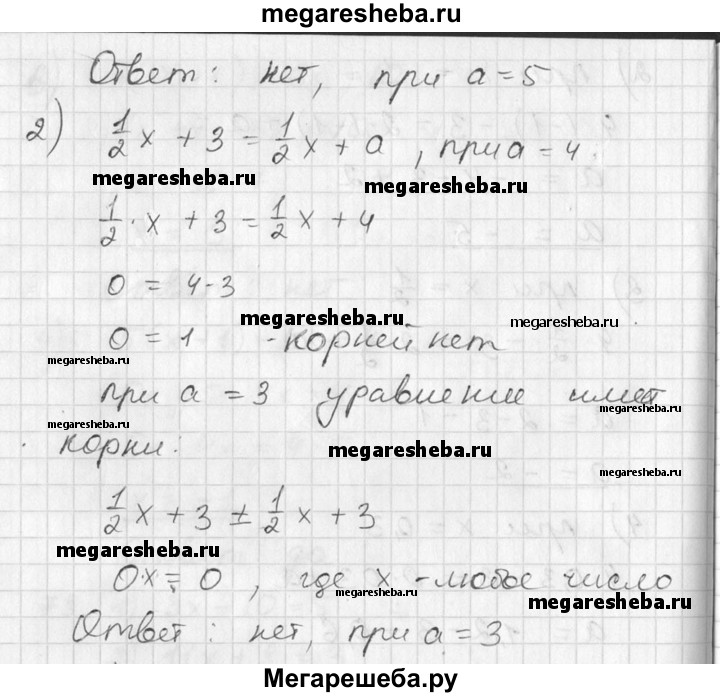 megaresheba.ru
Ответ: нет, при a = 5
2) 1/2 x + 3 = 1/2 x + a, при a = 4.
megaresheba.ru
megaresheba.ru
1/2 · x + 3 = 1/2 x + 4
0 = 4 - 3
megaresheba.ru
megaresheba.ru
0 = 1 - корней нет
megaresheba.ru
при a = 3 уравнение имеет
megaresheba.ru
корни:
megaresheba.ru
megaresheba.ru
megaresheba.ru
1/2 x + 3 = 1/2 x + 3
megaresheba.ru
0·x = 0, где x - любое число
megaresheba.ru
megaresheba.ru
Ответ: нет, при a = 3
Мегарешеба.ру